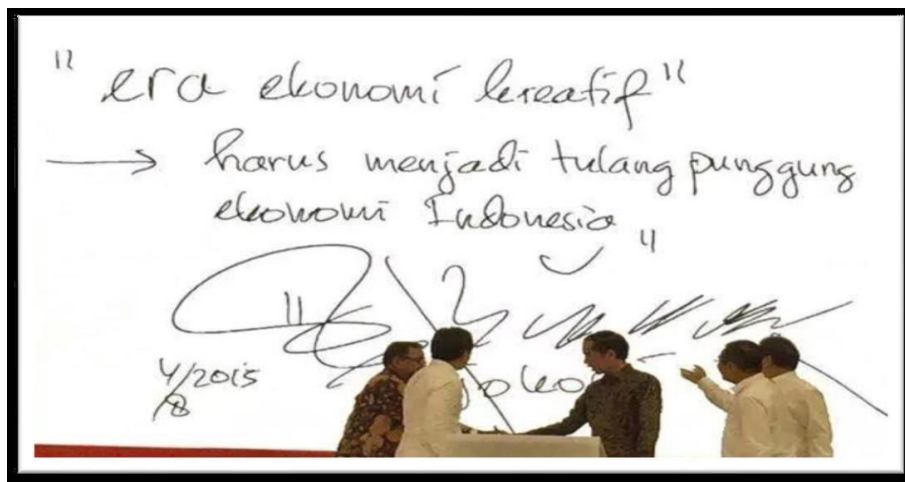 " era ekonomi kreatif "
→ harus menjadi tulang punggung
ekonomi Indonesia "
4/2015
/8